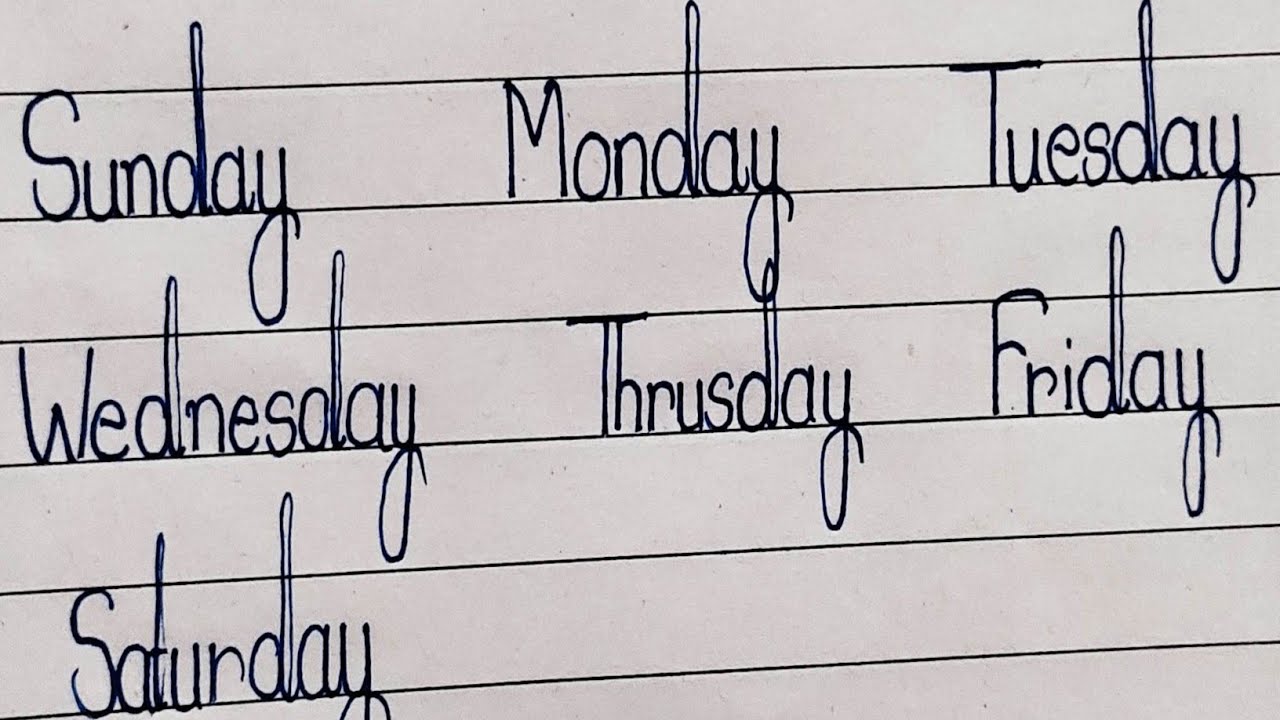 Sunday Monday Tuesday
Wednesday Thrusday Friday
Saturday